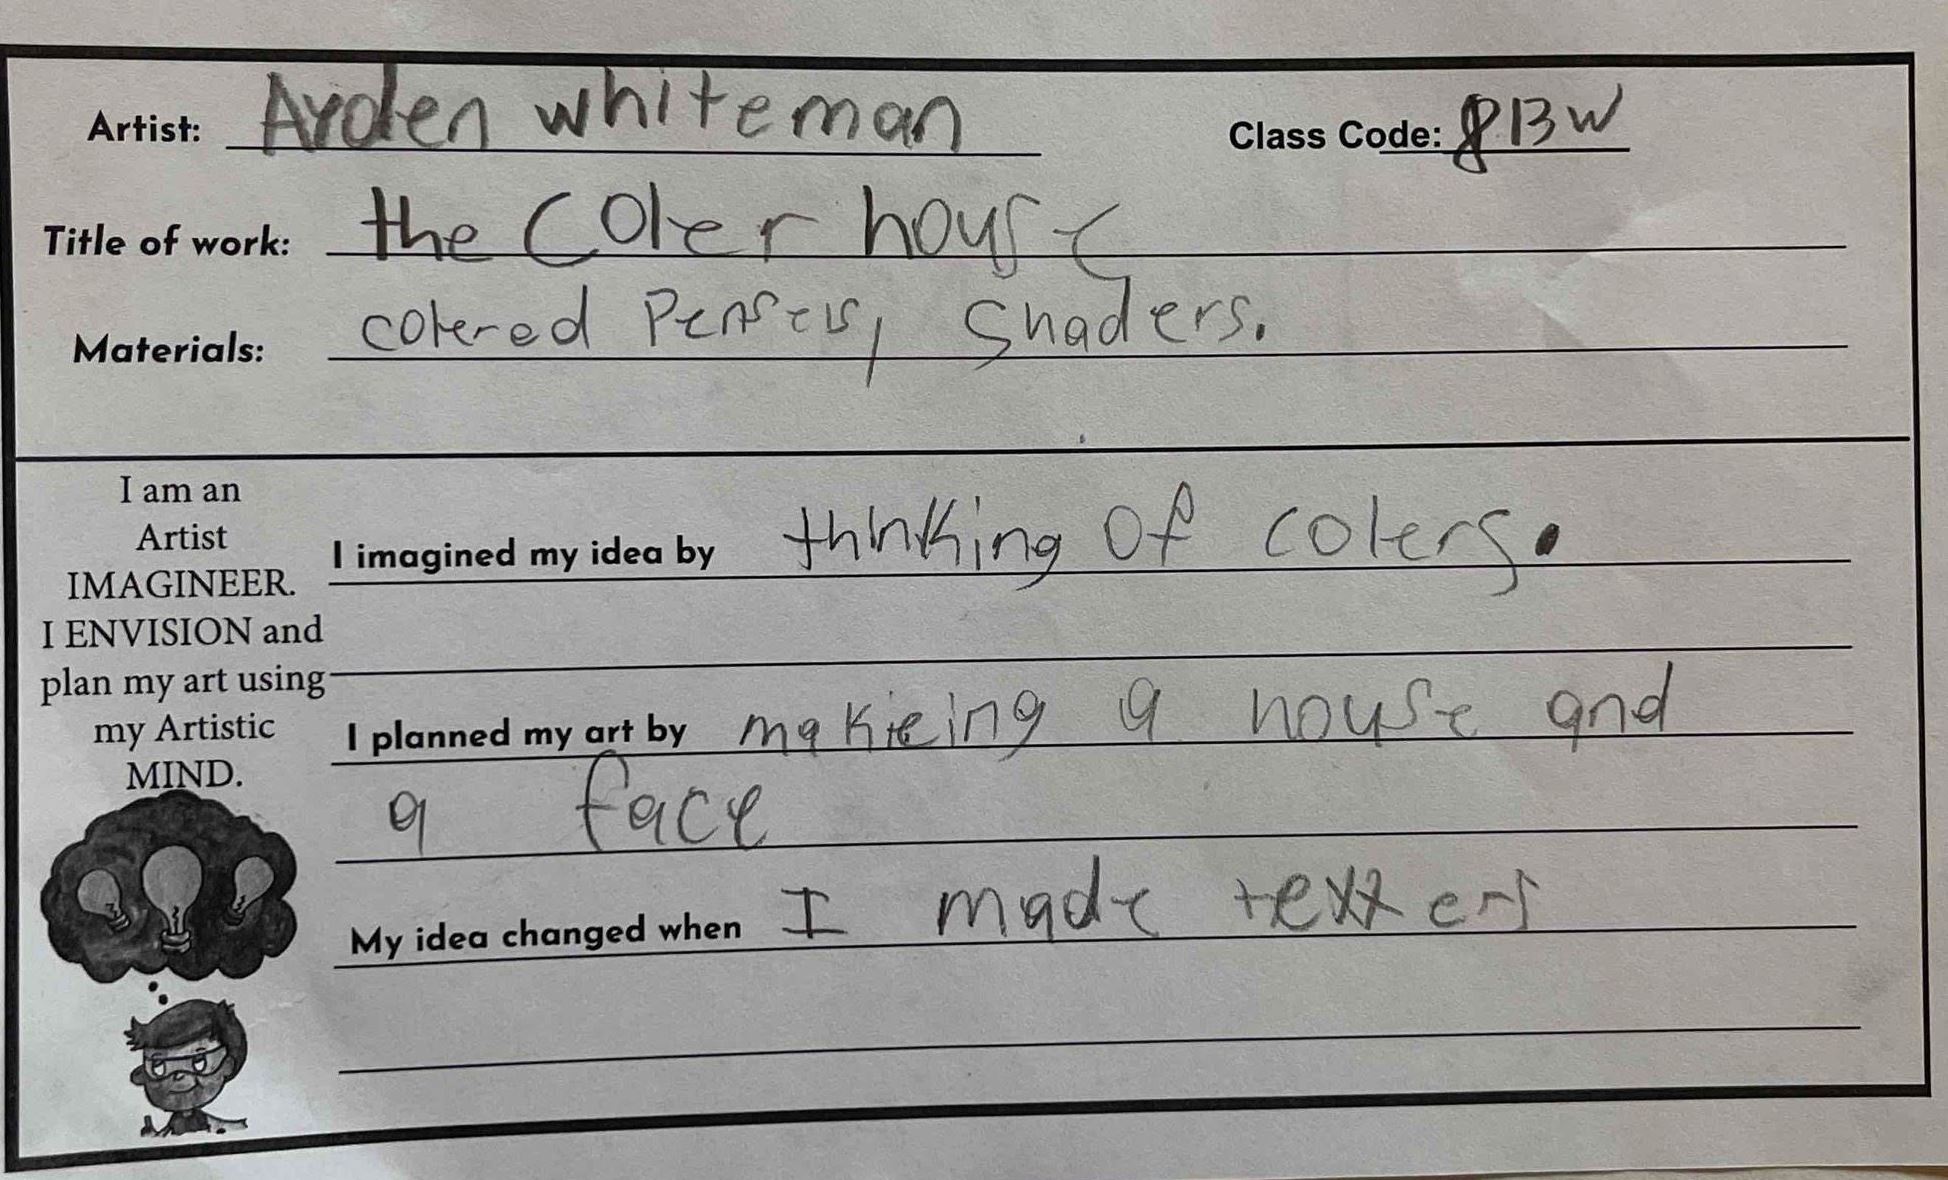 Artist: Arden whiteman Class Code: 8BW
Title of work: the Coler house
Materials: colered Pensels, Shaders.
I am an
Artist
IMAGINEER.
I ENVISION and
plan my art using
my Artistic
MIND.
I imagined my idea by thinking of colers.
I planned my art by makieing a house and
a face
My idea changed when I made texxers